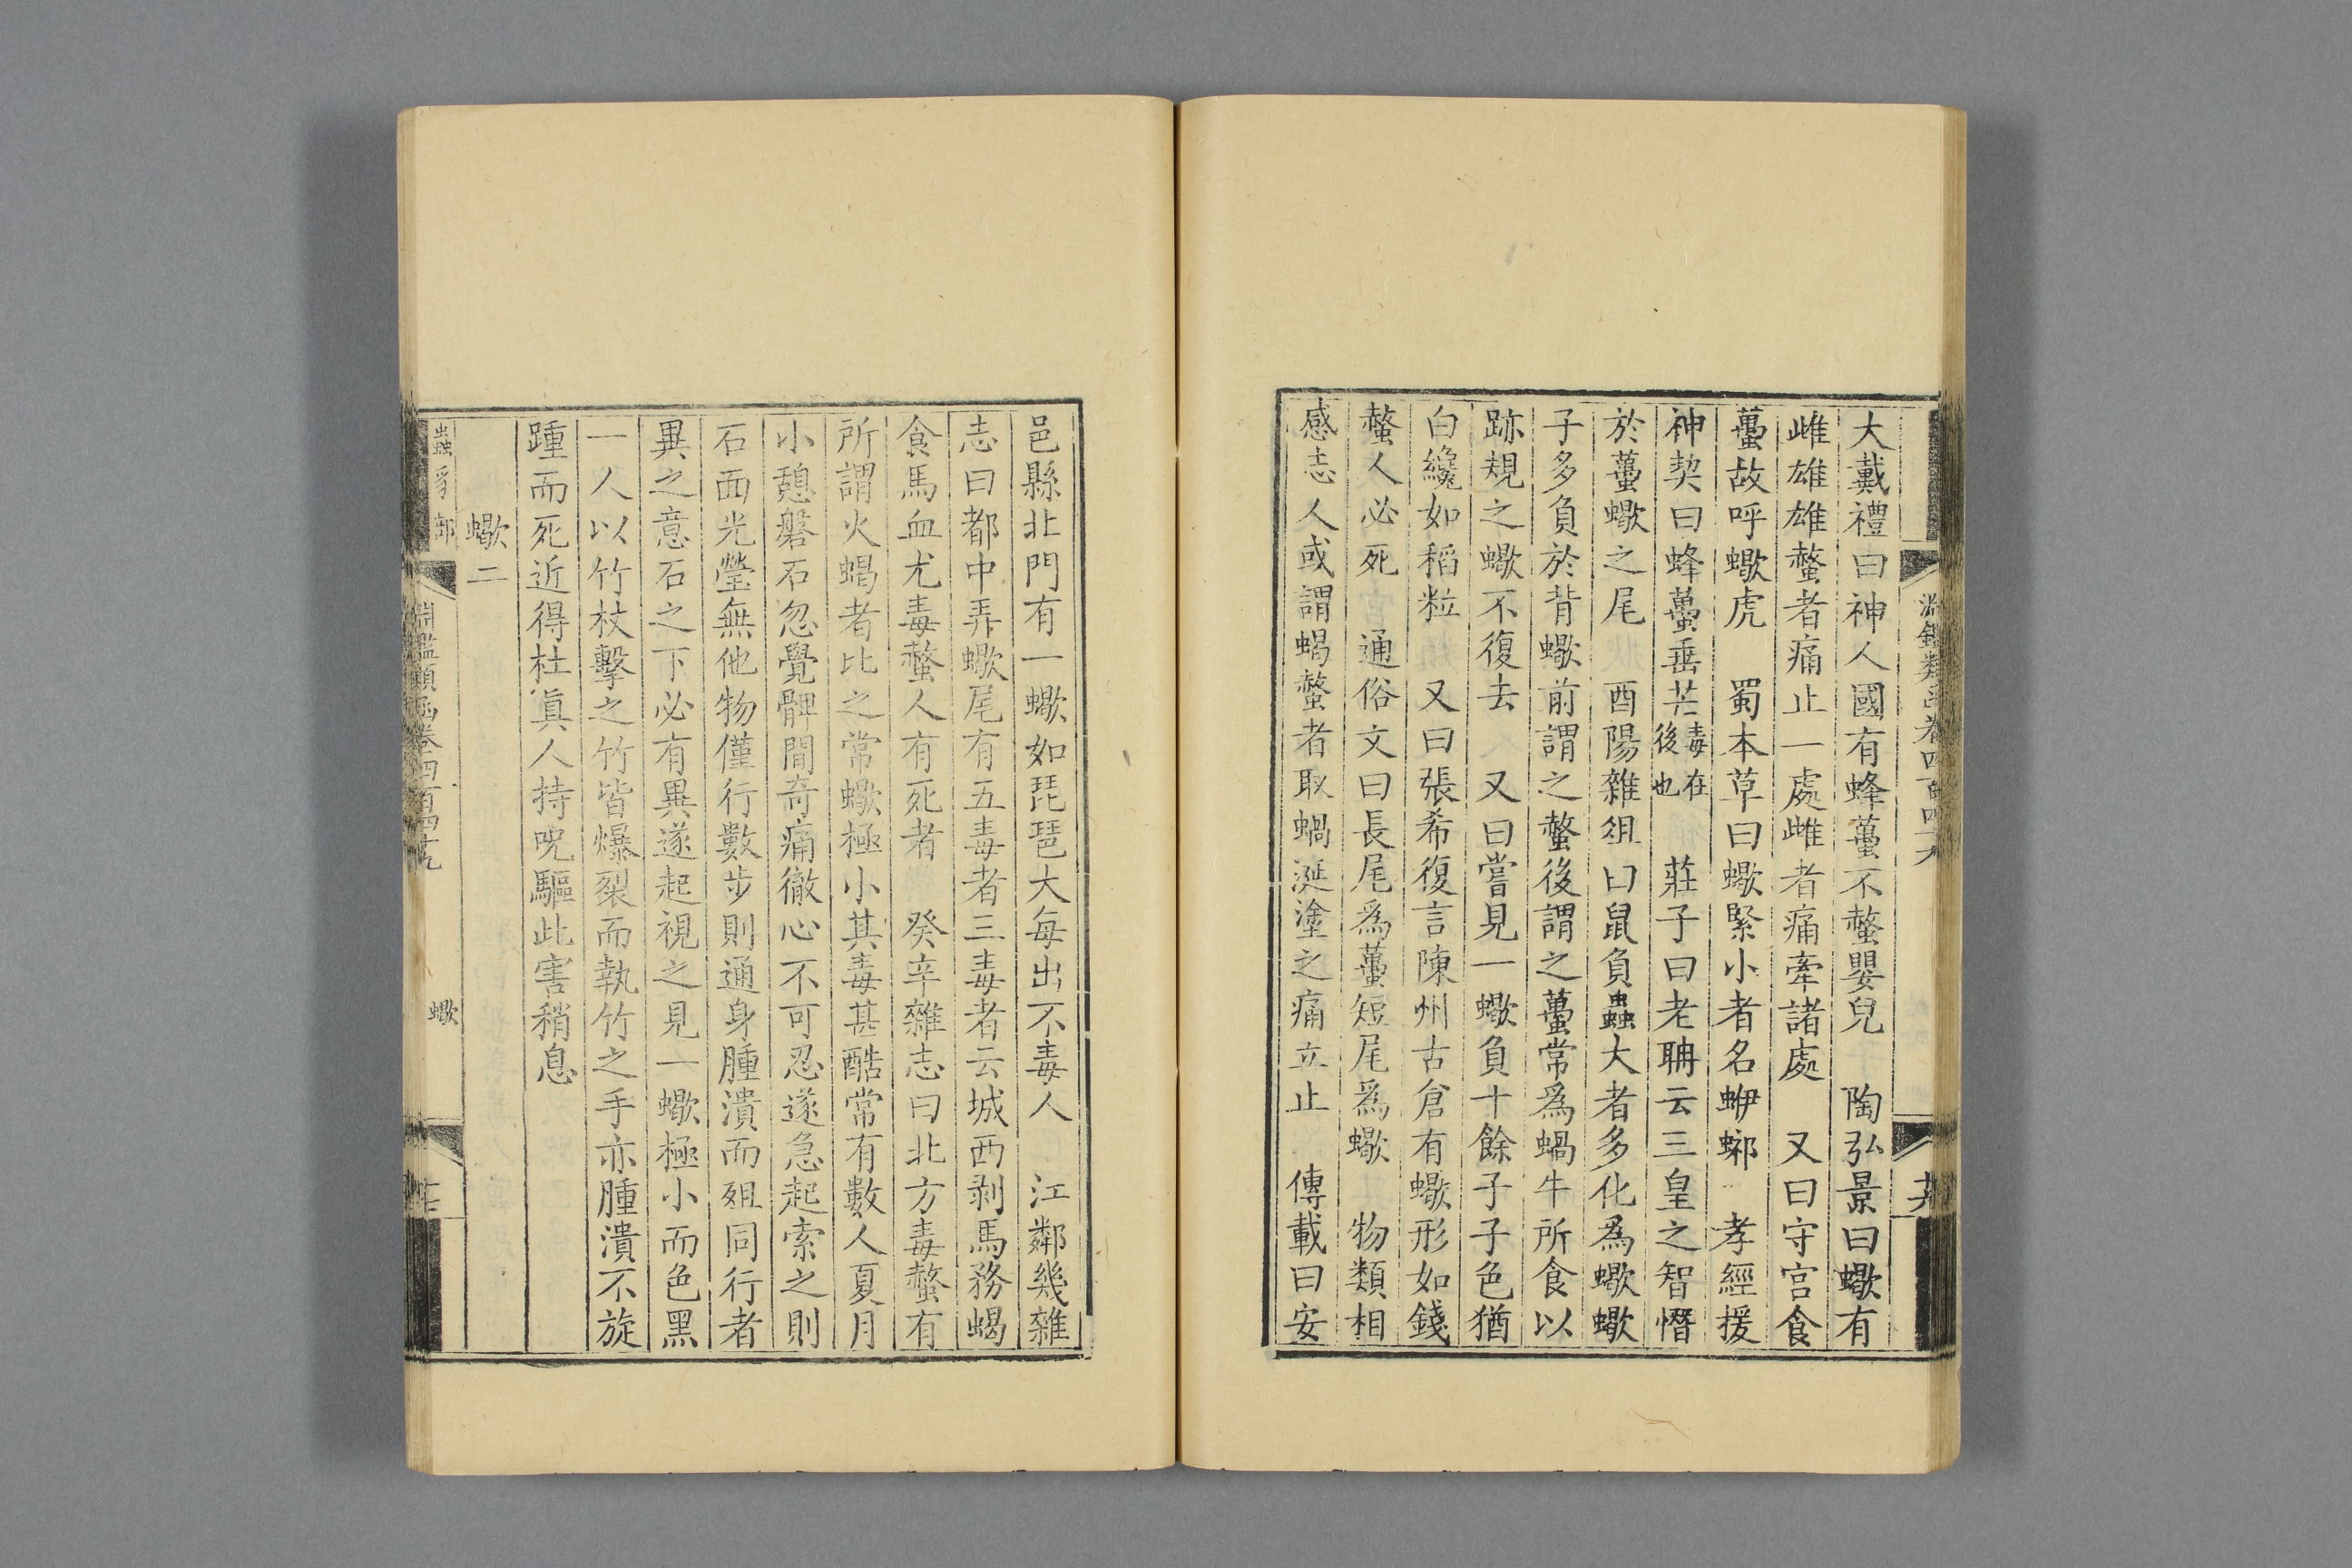 淵鑑類函卷四百四十九
大戴禮曰神人國有蜂蠆不螫嬰兒　陶弘景曰蠍有
雌雄雄螫者痛止一處雌者痛牽諸處　又曰守宮食
蠆故呼蠍虎　蜀本草曰蠍緊小者名蛜𧍪　孝經援
神契曰蜂蠆垂芒毒在後也　莊子曰老聃云三皇之智憯
於蠆蠍之尾　酉陽雜俎曰鼠負蟲大者多化為蠍蠍
子多負於背蠍前謂之螫後謂之蠆常為蝸牛所食以
跡規之蠍不復去　又曰嘗見一蠍負十餘子子色猶
白纔如稻粒　又曰張希復言陳州古倉有蠍形如錢
螫人必死　通俗文曰長尾為蠆短尾為蠍　物類相
感志人或謂蝎螫者取蝸涎塗之痛立止　傳載曰安
邑縣北門有一蠍如琵琶大每出不毒人　江鄰幾雜
志曰都中弄蠍尾有五毒者三毒者云城西剥馬務蝎
食馬血尤毒螫人有死者　癸辛雜志曰北方毒螫有
所謂火蝎者比之常蠍極小其毒甚酷常有數人夏月
小憩磐石忽覺髀間奇痛徹心不可忍遂急起索之則
石面光瑩無他物僅行數步則通身腫潰而殂同行者
異之意石之下必有異遂起視之見一蠍極小而色黑
一人以竹杖擊之竹皆爆裂而執竹之手亦腫潰不旋
踵而死近得杜真人持咒驅此害稍息
蠍二
蟲豸部　淵鑑類函卷四百四十九　蠍